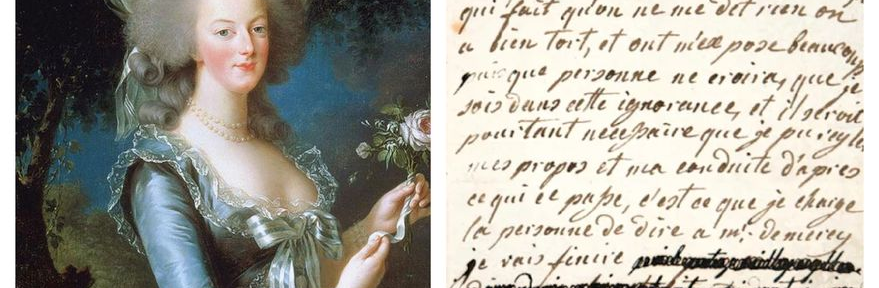 qui fait qu'on ne me dit rien on
a bien tort, et ont m'ex pose beaucoup
puis que personne ne croira, que je
sois dans cette ignorance, et il seroit
pourtant necessaire que je pu regler
mes propos et ma conduite d'apres
ce qui ce passe, c'est ce que je charge
la personne de dire a mr. de mercy
je vais finire